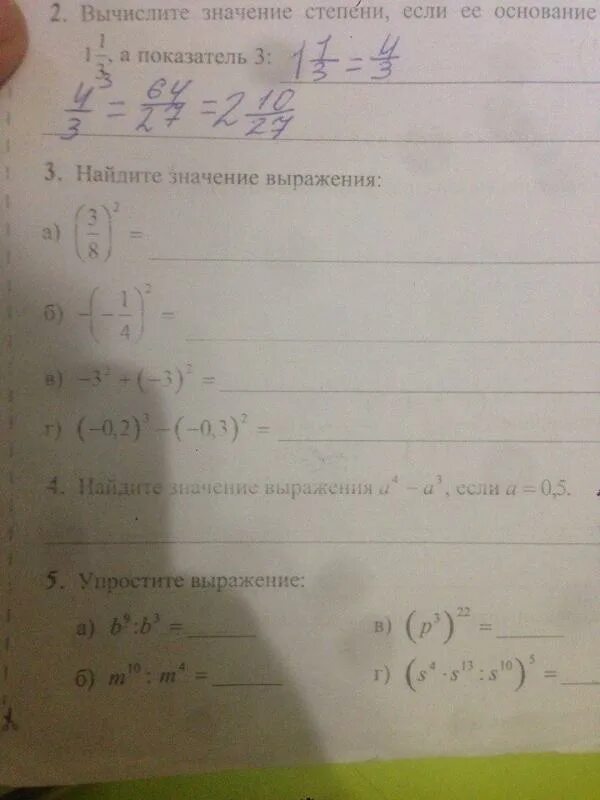 2. Вычислите значение степени, если ее основание
1 1/3, а показатель 3: 1 1/3 = 4/3
4/3³ = 64/27 = 2 10/27
3. Найдите значение выражения:
а) (3/8)² =
б) -(-1/4)² =
в) -3² + (-3)² =
г) (-0,2)³ - (-0,3)² =
4. Найдите значение выражения a⁴ - a³, если a = 0,5.
5. Упростите выражение:
а) b⁹:b³ =
в) (p³)²² =
б) m¹⁰ : m⁴ =
г) (s⁴ · s¹³ : s¹⁰)⁵ =